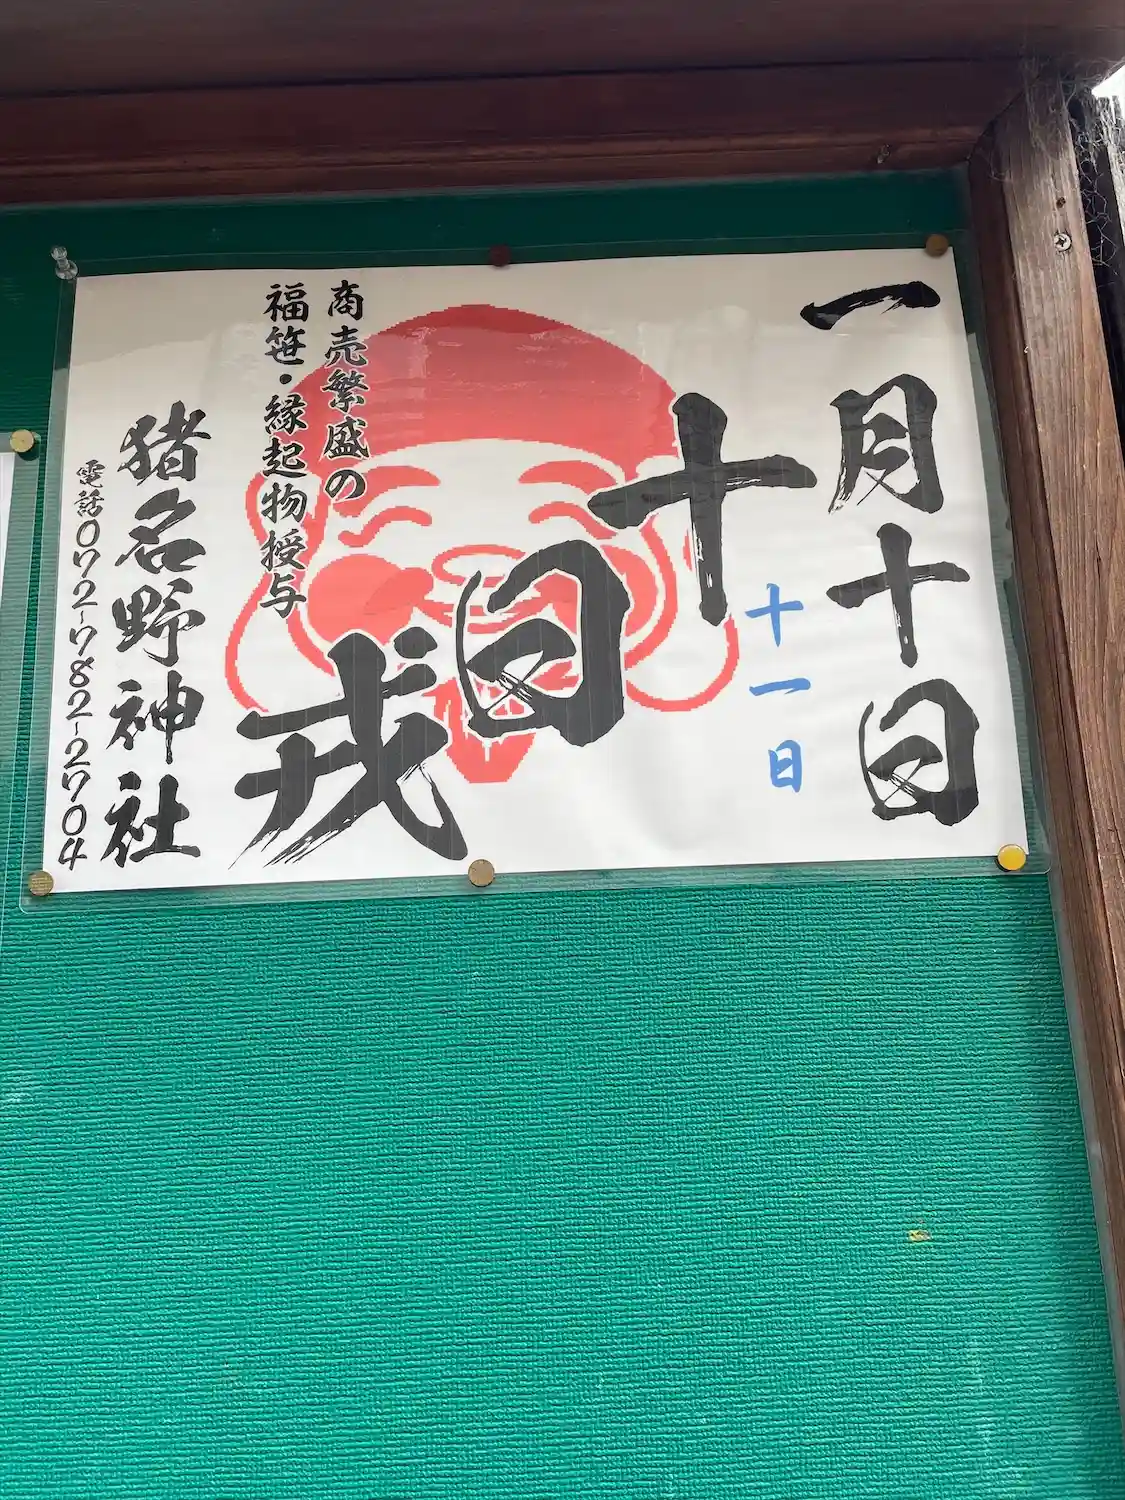 一月十日
十一日
十日戎
商売繁盛の
福笹・縁起物授与
猪名野神社
電話072-782-2704